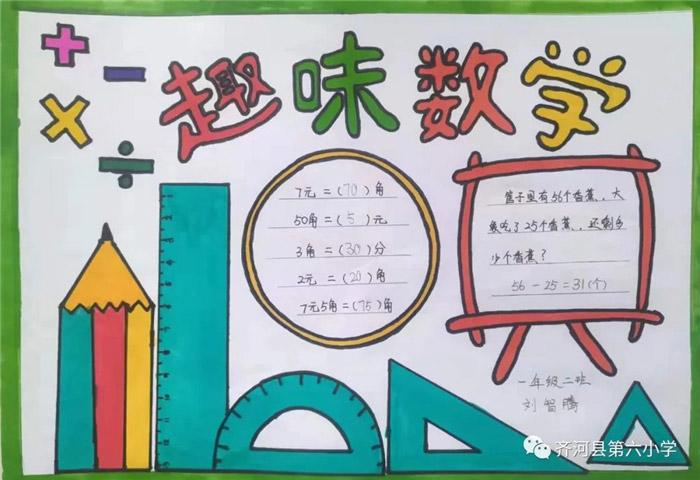 + - × ÷
趣味数学
7元=(70)角
50角=(5)元
3角=(30)分
2元=(20)角
7元5角=(75)角
篮子里有56个香蕉,大
象吃了25个香蕉,还剩多
少个香蕉?
56-25=31(个)
一年级二班
刘智腾
齐河县第六小学